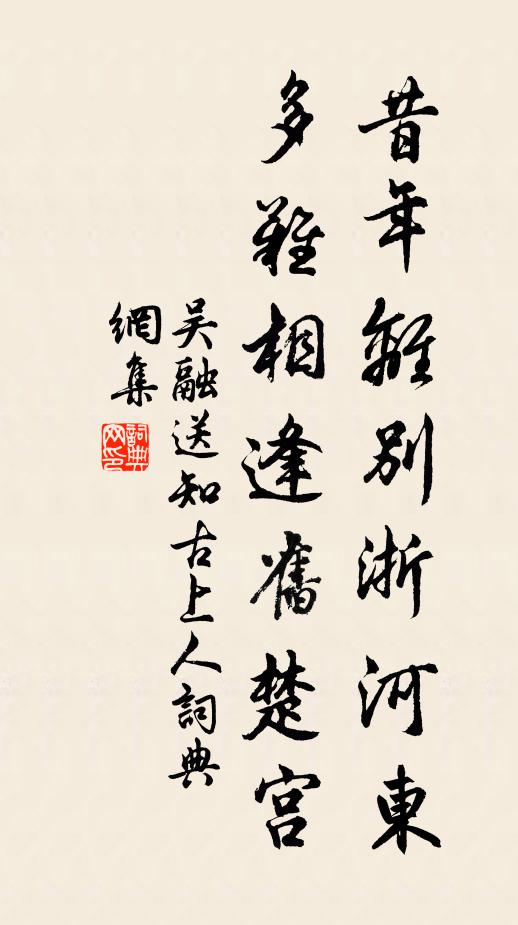 昔年離別浙河東
多難相逢舊楚宮
吳融送知古上人詞典
網集
詞典
网印